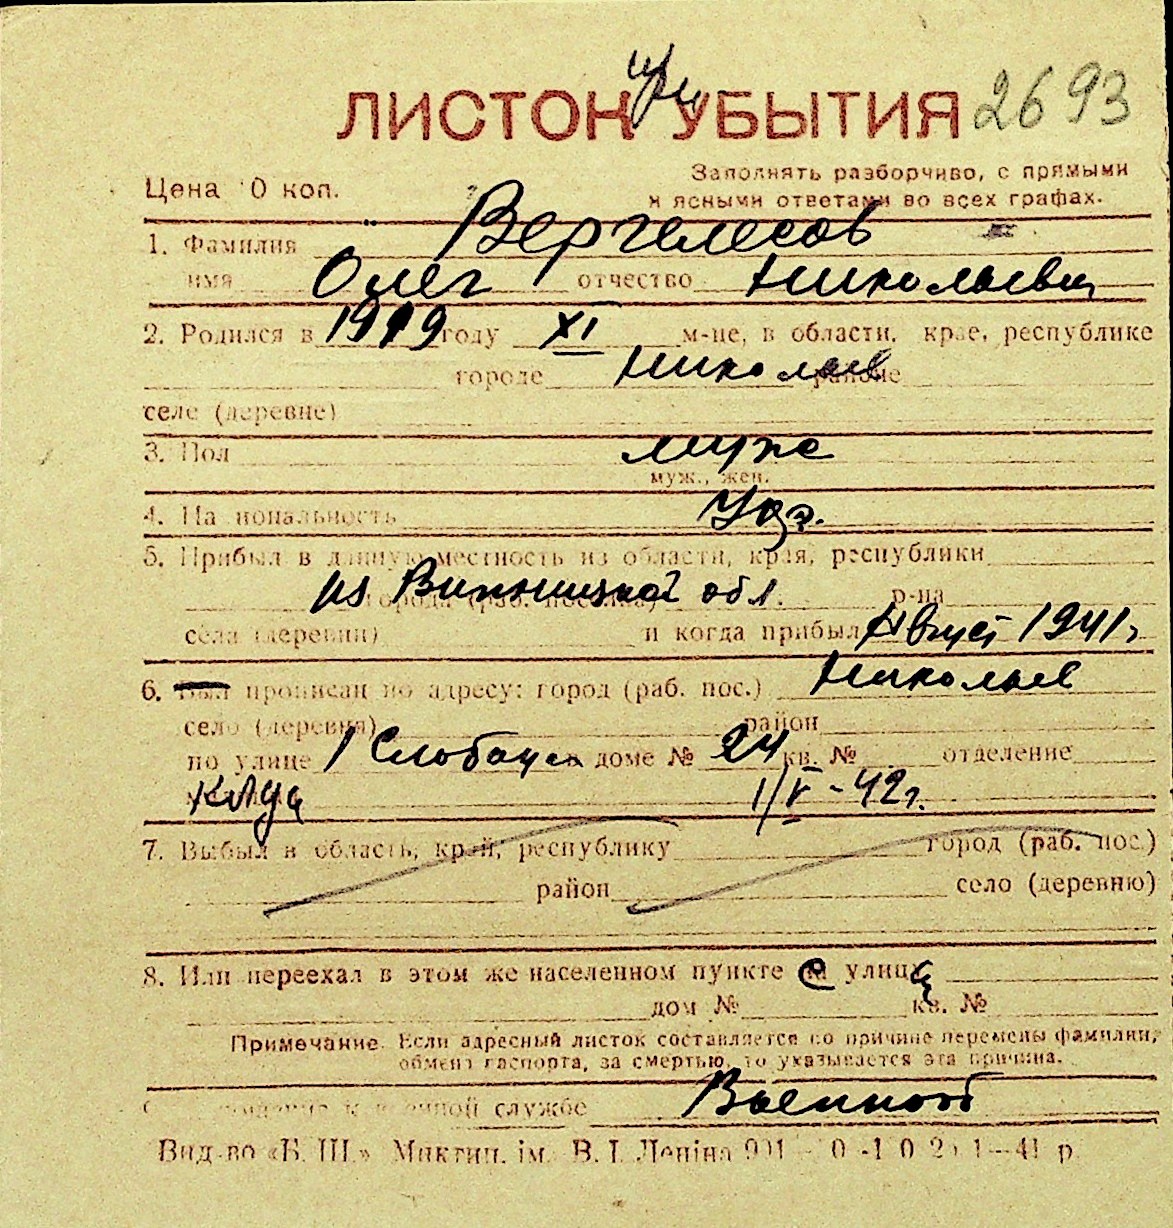 ЛИСТОК при УБЫТИЯ 2693
Цена 0 коп.
Заполнять разборчиво, с прямыми
и ясными ответами во всех графах.
1. Фамилия Вергелесов
имя Олег отчество Николаевич
2. Родился в 1919 году XI м-це, в области, крае, республике
городе Николаев районе
селе (деревне)
3. Пол муж
муж., жен.
4. Национальность Укр.
5. Прибыл в данную местность из области, края, республики
из Винницкой обл. города (раб. поселка) р-на
села (деревни) и когда прибыл Август 1941 г.
6. Был прописан по адресу: город (раб. пос.) Николаев
село (деревня) район
по улице 1 Слободск доме № 24 кв. № отделение
1/V-42 г.
7. Выбыл в область, край, республику город (раб. пос.)
район село (деревню)
8. Или переехал в этом же населенном пункте с улицы
дом № кв. №
Примечание. Если адресный листок составляется по причине перемены фамилии,
обмена паспорта, за смертью, то указывается эта причина.
военной службе Военнооб
Вид-во «Б. Ш.» Миктип. ім. В. І. Леніна 41 р.